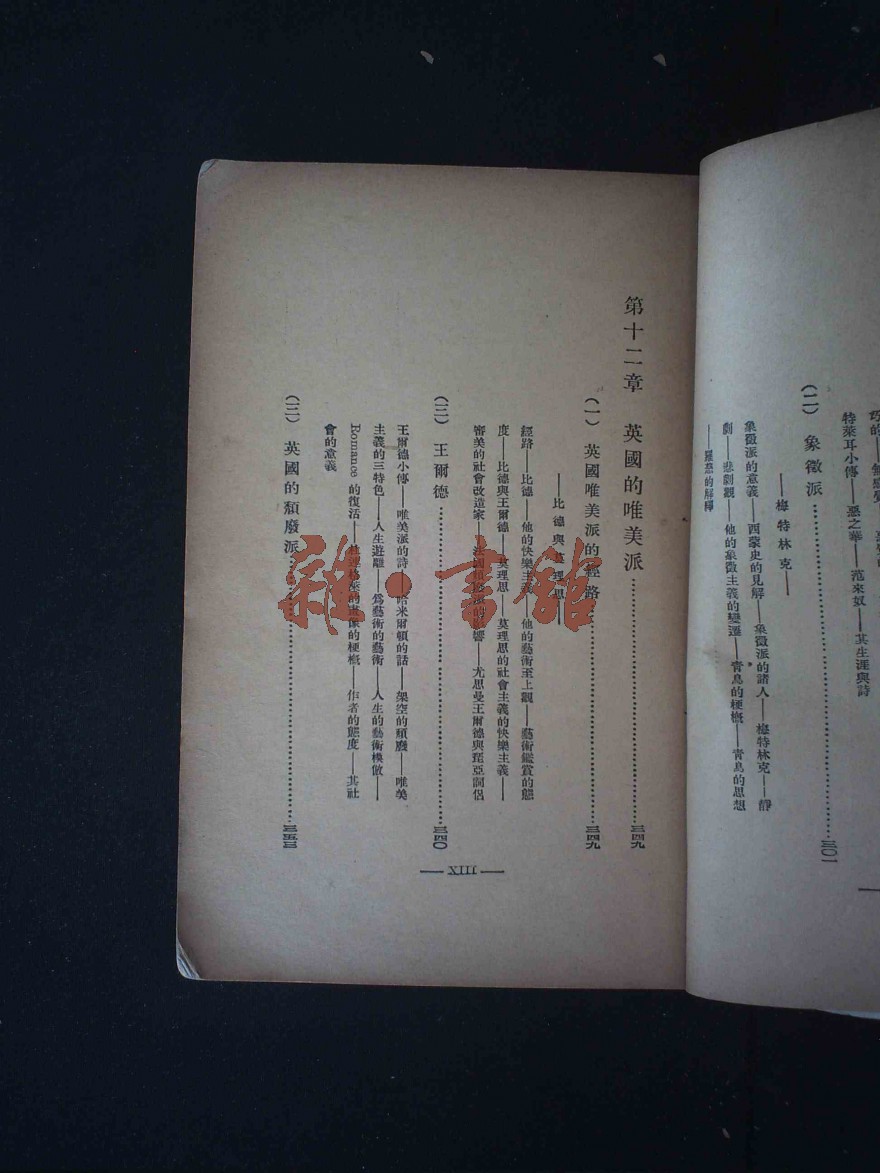 巧的——無感覺
特萊耳小傳——惡之華——范來奴——其生涯與詩
(二) 象徵派……三〇一
——梅特林克——
象徵派的意義——西蒙史的見解——象徵派的諸人——梅特林克——靜
劇——悲劇觀——他的象徵主義的變遷——青鳥的梗概——青鳥的思想
——羅慈的解釋
第十二章 英國的唯美派……三四九
(一) 英國唯美派的經路……三四九
——比德與莫理思——
經路——比德——他的快樂主義——他的藝術至上觀——藝術鑑賞的態
度——比德與王爾德——莫理思——莫理思的社會主義的快樂主義——
審美的社會改造家——法國頹廢派的影響——尤思曼王爾德與琵亞詞侶
(二) 王爾德……三四〇
王爾德小傳——唯美派的詩——哈米爾頓的話——架空的頹廢——唯美
主義的三特色——人生遊離——爲藝術的藝術——人生的藝術模倣——
Romance 的復活——杜連格萊的畫像的梗概——作者的態度——其社
會的意義
(三) 英國的頹廢派……三五三
— XIII —
雜·書館